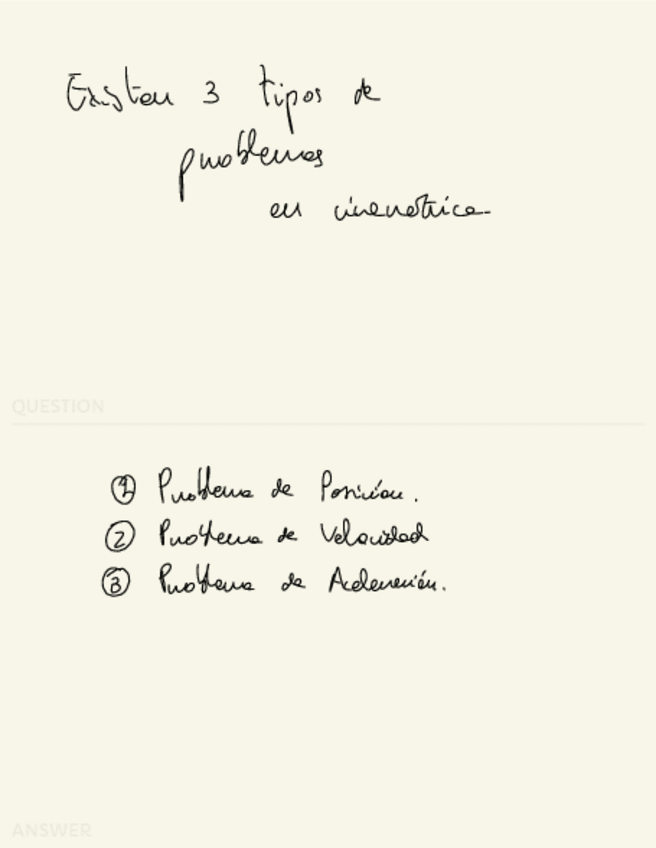 Existen 3 tipos de
problemas
en cinemática
QUESTION
① Problema de Posición.
② Problema de Velocidad
③ Problema de Aceleración.
ANSWER